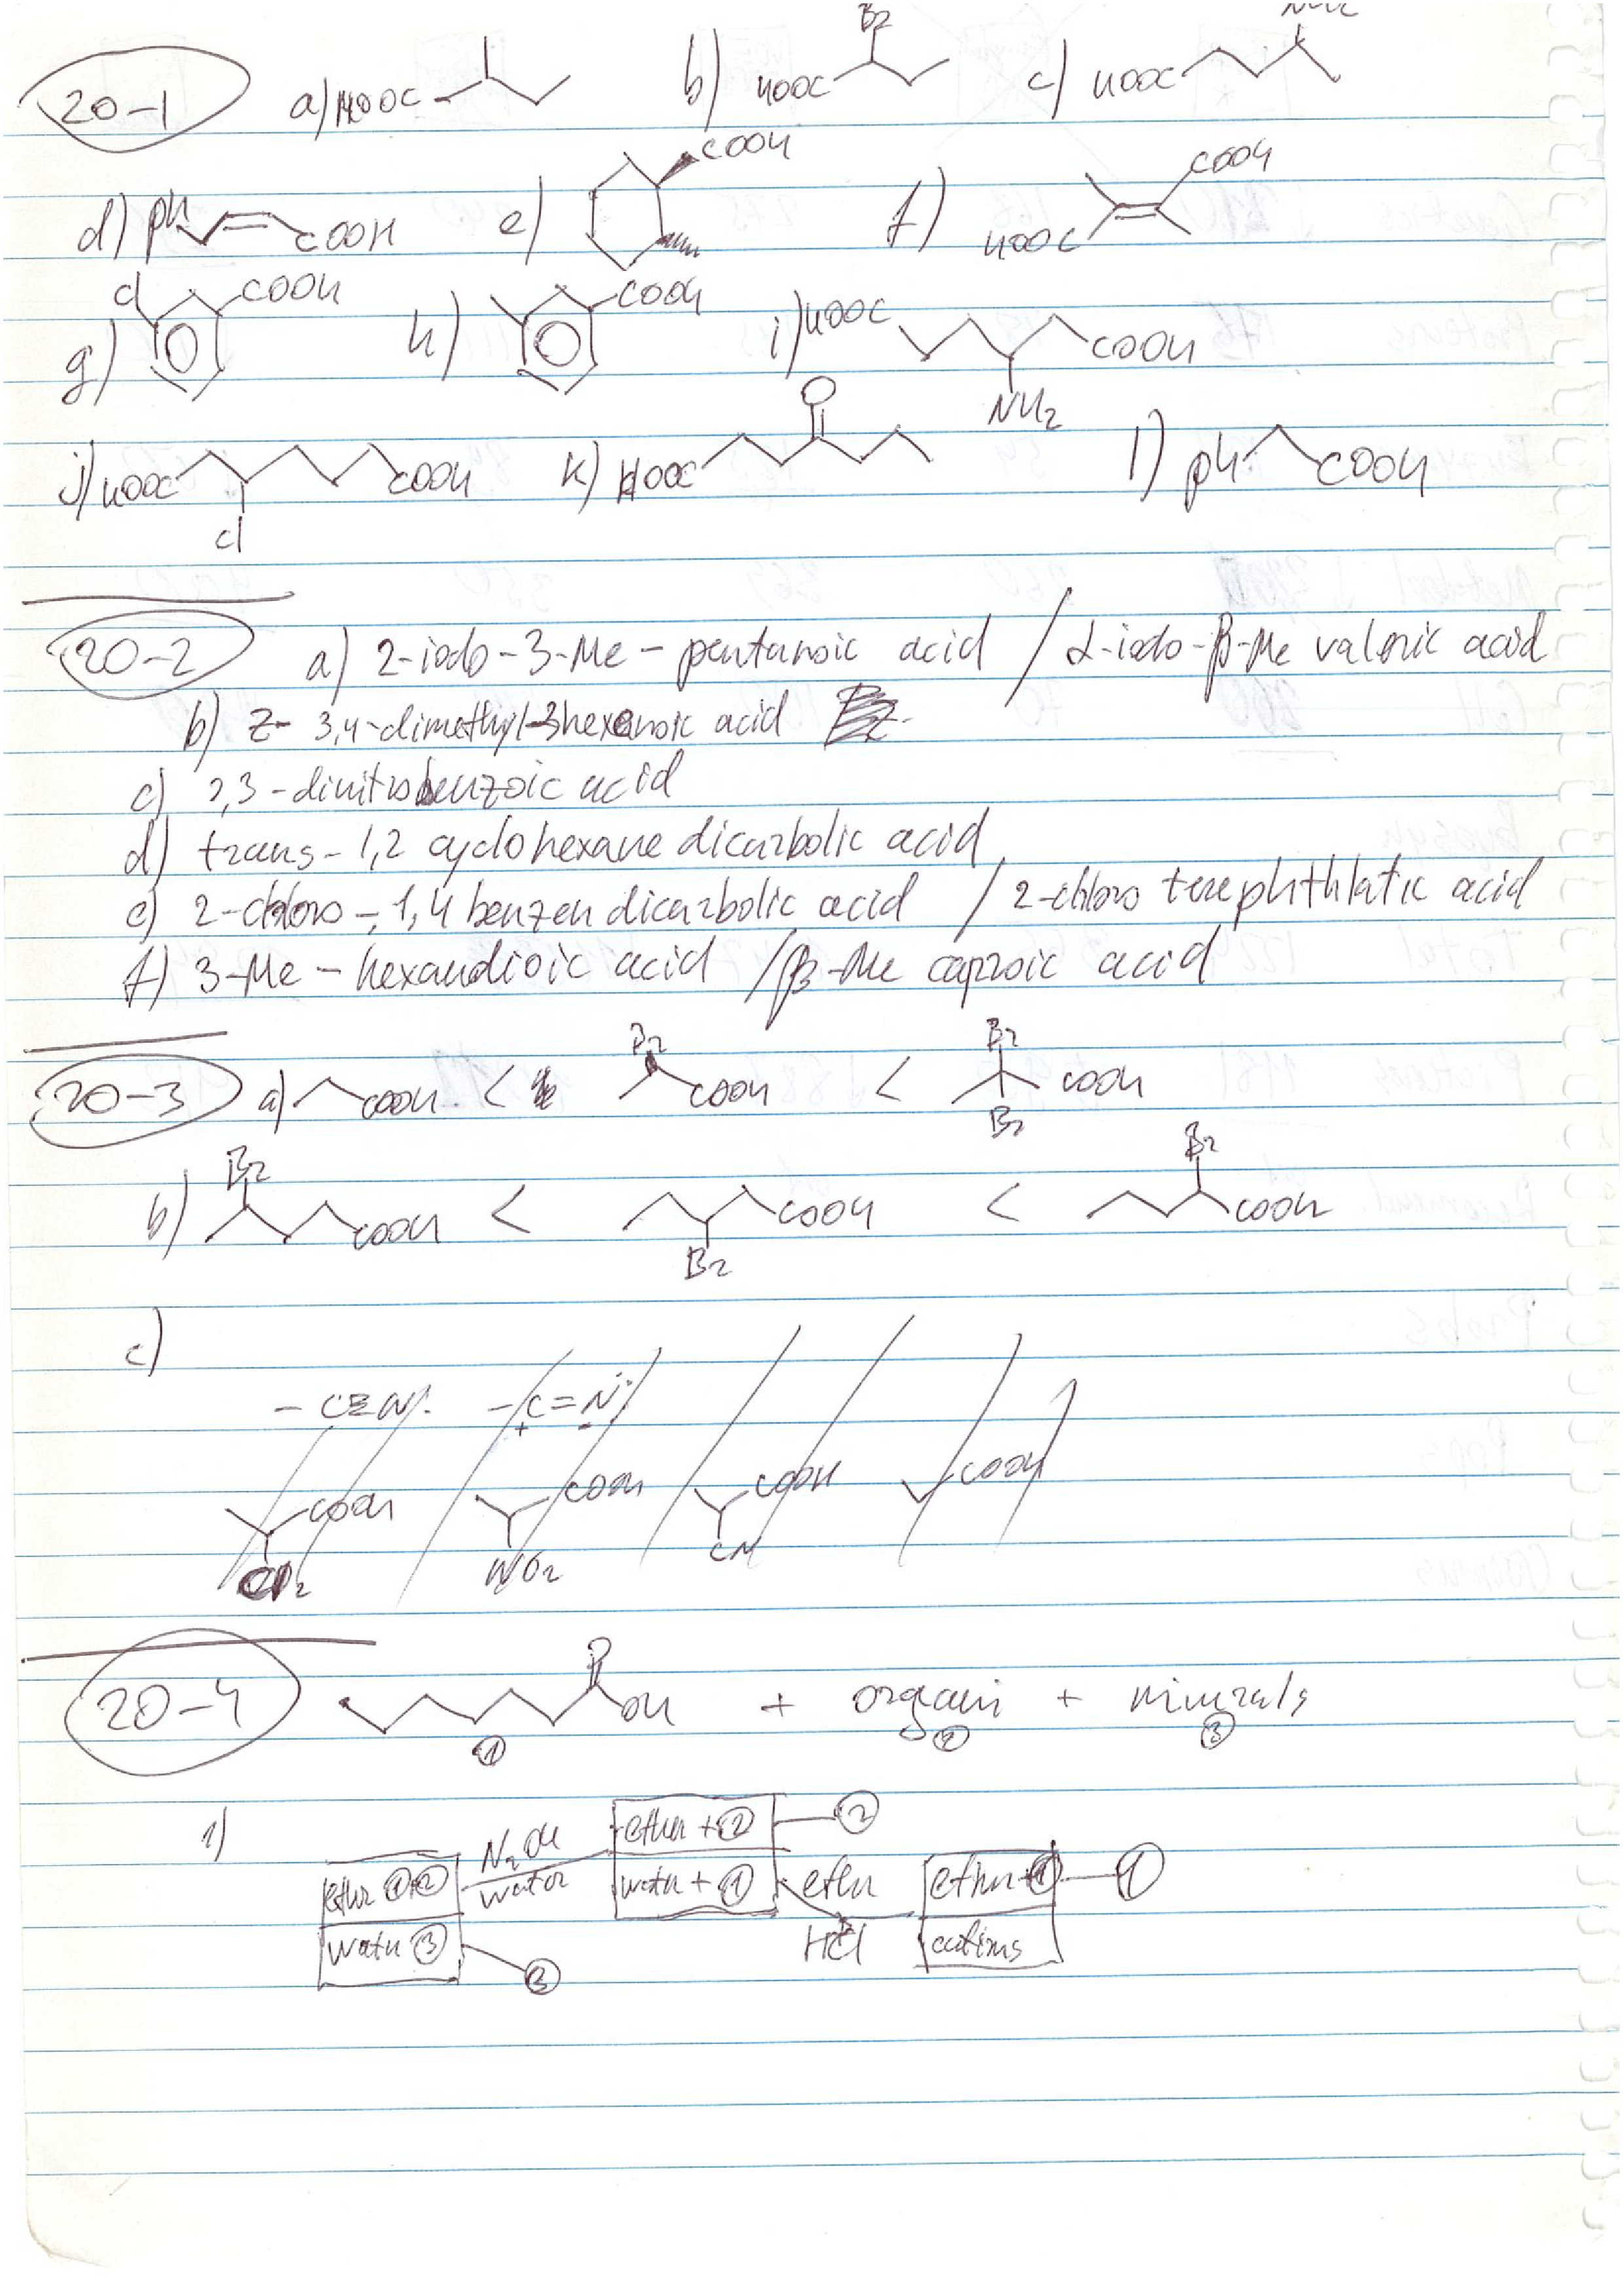 20-1 a) HOOC b) HOOC Br c) HOOC NH2
d) Ph COOH e) COOH f) HOOC COOH
g) Cl COOH h) COOH i) HOOC NH2 COOH
j) HOOC Cl COOH k) HOOC O l) ph COOH
20-2 a) 2-iodo-3-Me-pentanoic acid / α-iodo-β-Me valeric acid
b) Z- 3,4-dimethyl-3hexenoic acid
c) 2,3-dinitrobenzoic acid
d) trans-1,2 cyclohexane dicarbolic acid
e) 2-chloro-1,4 benzen dicarbolic acid / 2-chloro terephthlatic acid
f) 3-Me-hexandioic acid / β-Me caproic acid
20-3 a) COOH < Br COOH < Br Br COOH
b) Br COOH < Br COOH < Br COOH
c)
-C≡N: -C=N:
+ -
COOH COOH COOH COOH
NO2 CN
20-4 O OH + organi + minerals
① ② ③
1) ether ①+② NaOH water ether + ② ②
water ③ ③ water + ① ether HCl ether + ① ①